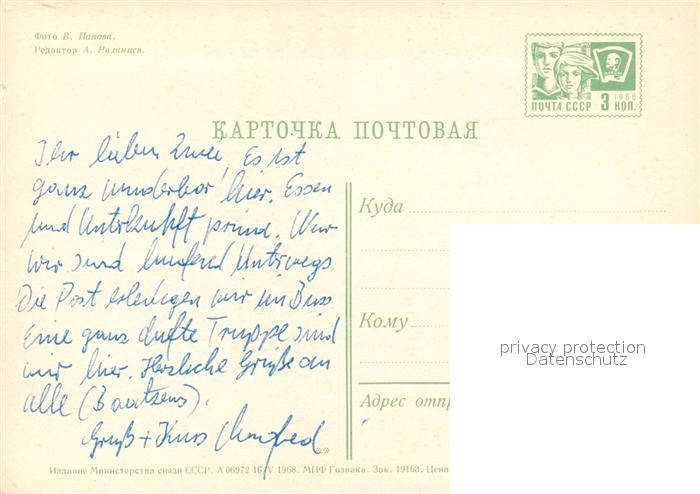 Фото В. Панова.
Редактор А. Рязанцев.
1966
ПОЧТА СССР 3 КОП.
КАРТОЧКА ПОЧТОВАЯ
Ihr lieben Zwei, Es ist
ganz wunderbar hier. Essen
und Unterkunft prima. Nur
wir sind laufend Unterwegs.
Die Post erledigen wir im Bus
Eine ganz dufte Truppe sind
wir hier. Herzliche Grüße an
alle (Bautzens).
Gruß + Kuss Manfred
Куда
Кому
Адрес отпр
privacy protection
Datenschutz
Издание Министерства связи СССР. А 06972 16/V 1968. МПФ Гознака. Зак. 19163. Цена